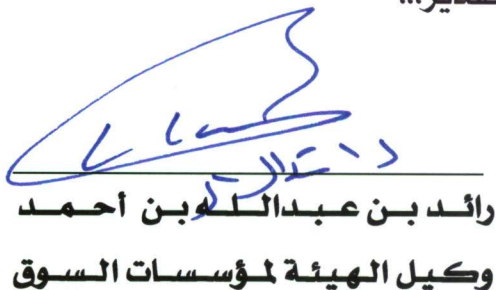 رائد بن عبدالله بن أحمد
وكيل الهيئة لمؤسسات السوق